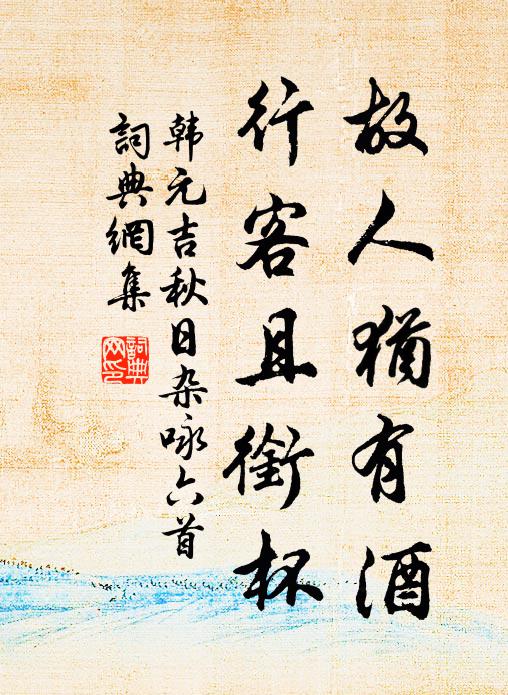 故人猶有酒
行客且銜杯
韩元吉秋日杂咏六首
詞典網集
詞典網印